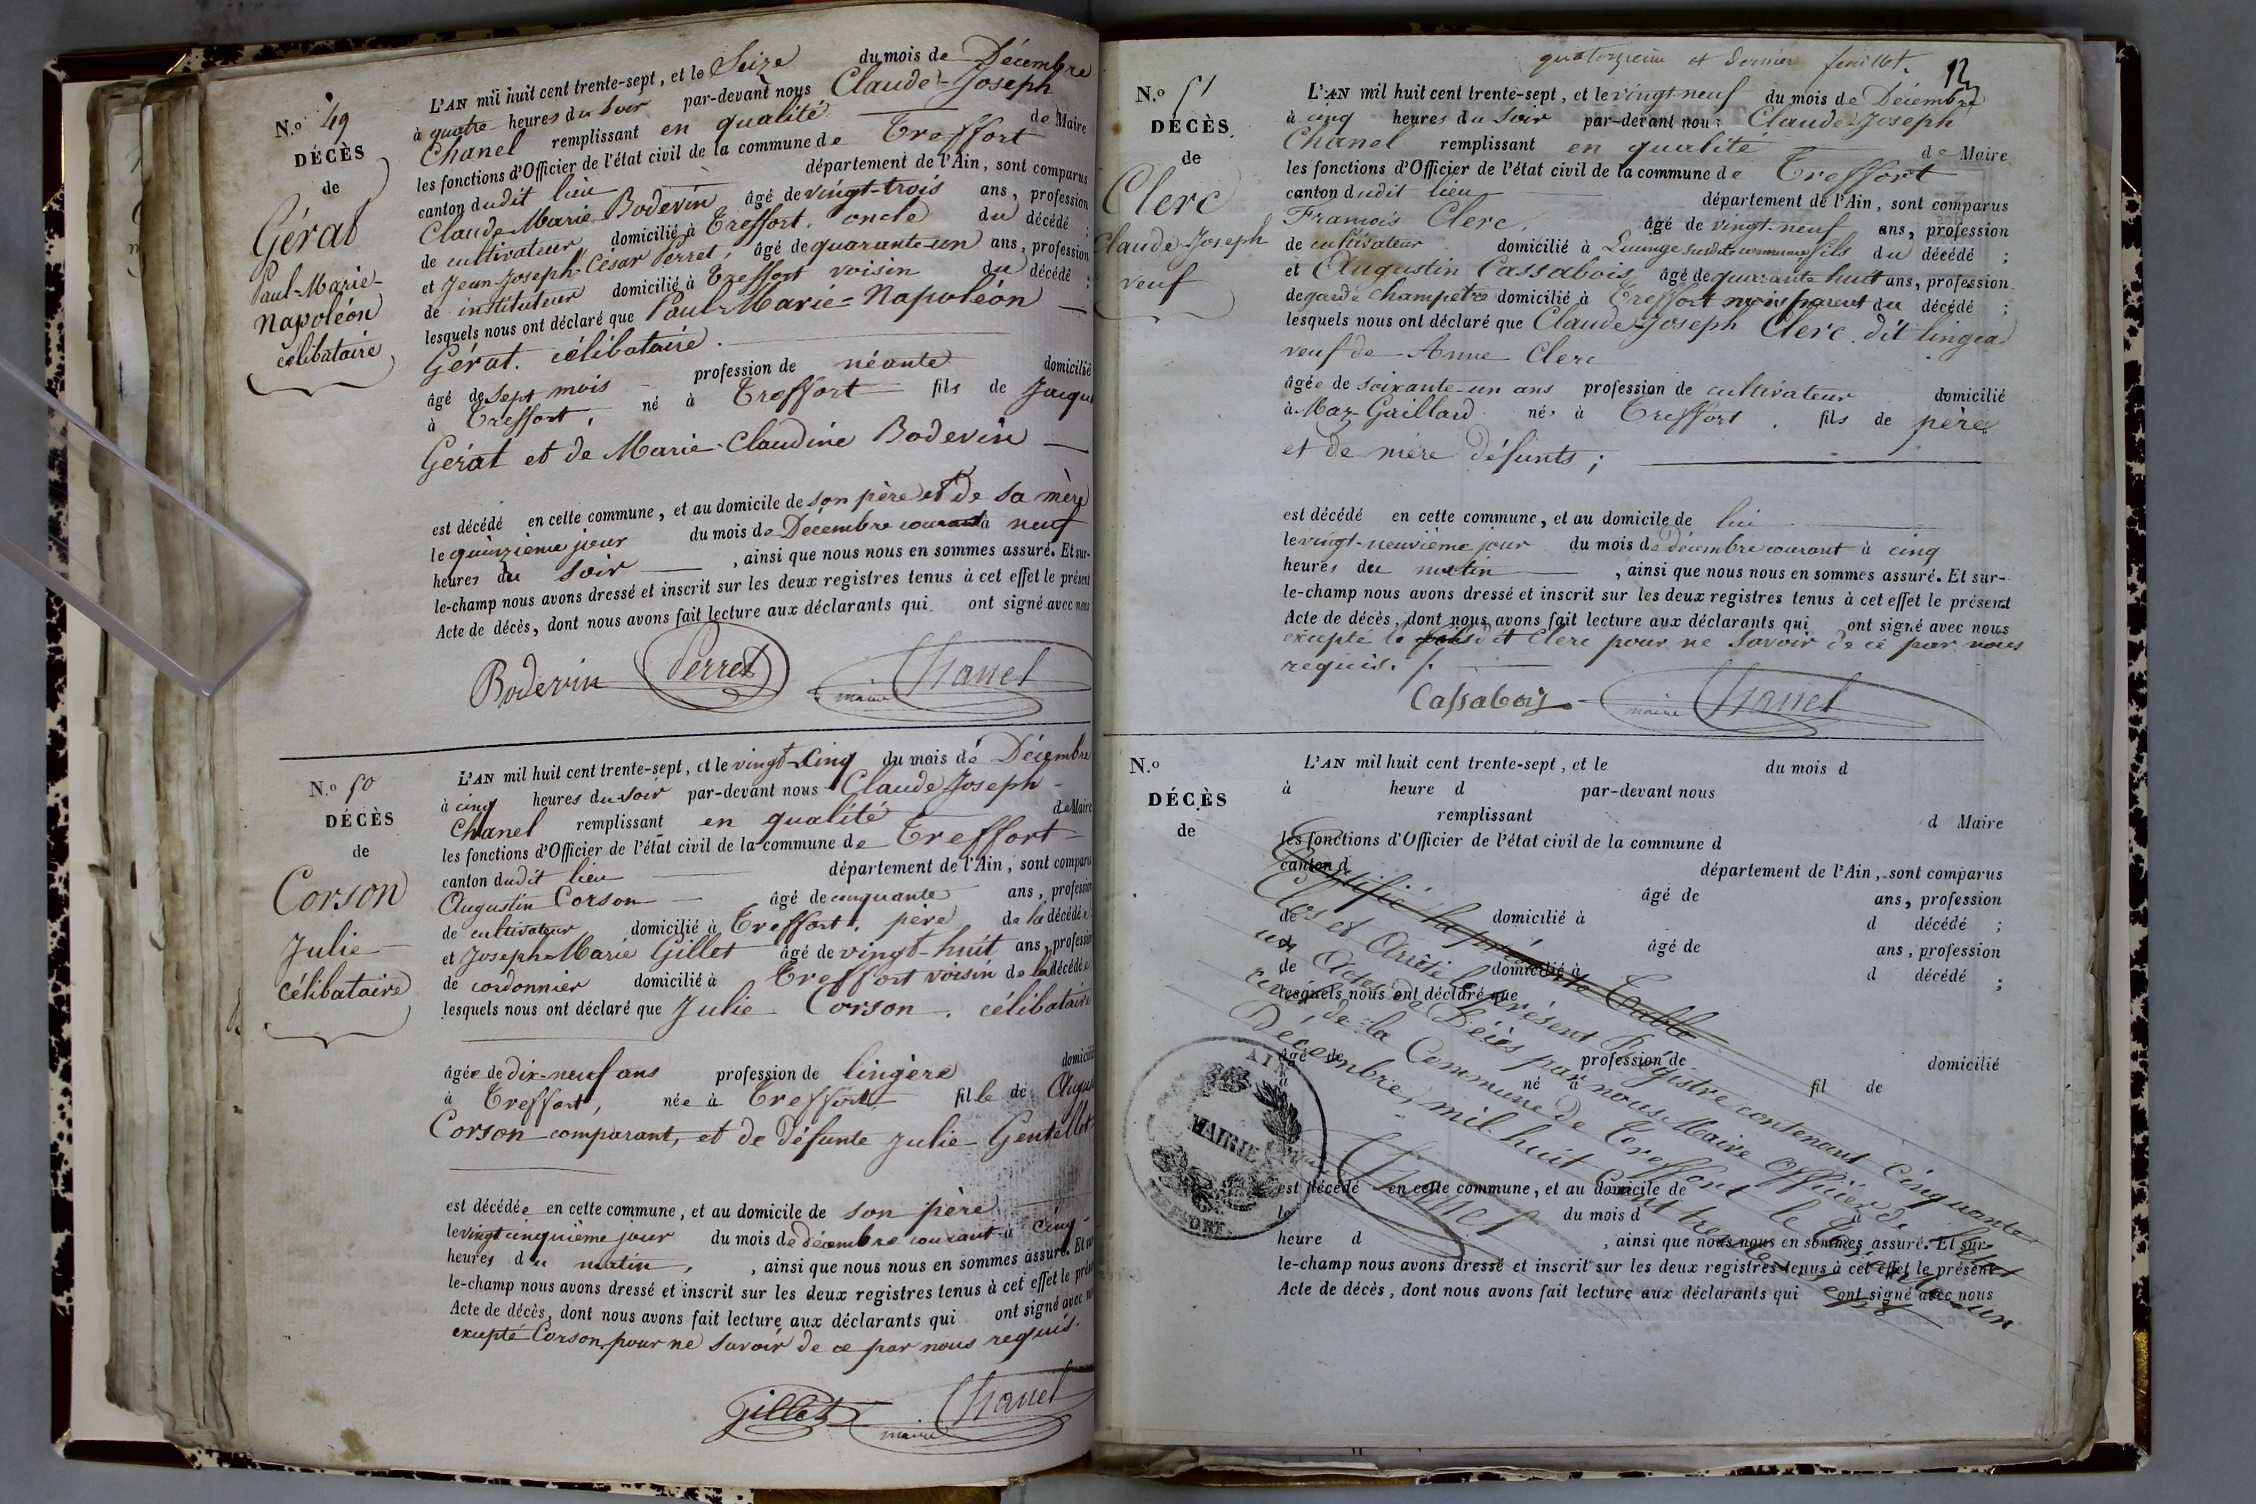 N.o 49
DÉCÈS
de
Gérat
Paul-Marie-
Napoléon
célibataire
L'AN mil huit cent trente-sept, et le Seize du mois de Décembre
à quatre heures du Soir par-devant nous Claude-Joseph
Chanel remplissant en qualité de Maire
les fonctions d'Officier de l'état civil de la commune de Treffort
canton dudit lieu département de l'Ain, sont comparus
Claude-Marie Bodevin âgé de vingt-trois ans, profession
de cultivateur domicilié à Treffort, oncle du décédé ;
et Jean-Joseph-César Perret, âgé de quarante-un ans, profession
de instituteur domicilié à Treffort voisin du décédé ;
lesquels nous ont déclaré que Paul-Marie-Napoléon
Gérat, célibataire.
âgé de sept mois profession de néante domicilié
à Treffort, né à Treffort fils de Jacques
Gérat et de Marie-Claudine Bodevin
est décédé en cette commune, et au domicile de son père et de sa mère
le quinzième jour du mois de Décembre courant à neuf
heures du soir , ainsi que nous nous en sommes assuré. Et sur-
le-champ nous avons dressé et inscrit sur les deux registres tenus à cet effet le présent
Acte de décès, dont nous avons fait lecture aux déclarants qui ont signé avec nous
Bodevin Perret maire Chanel
N.o 50
DÉCÈS
de
Corson
Julie
célibataire
L'AN mil huit cent trente-sept, et le vingt-cinq du mois de Décembre
à cinq heures du soir par-devant nous Claude-Joseph
Chanel remplissant en qualité de Maire
les fonctions d'Officier de l'état civil de la commune de Treffort
canton dudit lieu département de l'Ain, sont comparus
Augustin Corson âgé de cinquante ans, profession
de cultivateur domicilié à Treffort, père de la décédée
et Joseph-Marie Gillet âgé de vingt-huit ans, profession
de cordonnier domicilié à Treffort voisin de la décédée
lesquels nous ont déclaré que Julie Corson, célibataire
âgée de dix-neuf ans profession de lingère domicilié
à Treffort, née à Treffort fille de Augus
Corson comparant, et de défunte Julie Gentellet
est décédée en cette commune, et au domicile de son père
le vingt cinquième jour du mois de décembre courant à cinq
heures du matin, , ainsi que nous nous en sommes assuré. Et sur
le-champ nous avons dressé et inscrit sur les deux registres tenus à cet effet le prése
Acte de décès, dont nous avons fait lecture aux déclarants qui ont signé avec n
excepté Corson pour ne savoir de ce par nous requis.
Gillet maire Chanel
quatorzième et dernier feuillet.
N.o 51
DÉCÈS
de
Clerc
Claude-Joseph
veuf
L'AN mil huit cent trente-sept, et le vingt-neuf du mois de Décembre
à cinq heures du Soir par-devant nous Claude-Joseph
Chanel remplissant en qualité de Maire
les fonctions d'Officier de l'état civil de la commune de Treffort
canton dudit lieu département de l'Ain, sont comparus
François Clerc, âgé de vingt-neuf ans, profession
de cultivateur domicilié à commune fils du décédé ;
et Augustin Cassabois âgé de quarante huit ans, profession
de garde champêtre domicilié à Treffort non parent du décédé ;
lesquels nous ont déclaré que Claude-Joseph Clerc, dit
veuf de Anne Clerc
âgé de soixante-un ans profession de cultivateur domicilié
à Maz-Gaillard né à Treffort, fils de père
et de mère défunts ;
est décédé en cette commune, et au domicile de lui
le vingt-neuvième jour du mois de décembre courant à cinq
heures du matin , ainsi que nous nous en sommes assuré. Et sur-
le-champ nous avons dressé et inscrit sur les deux registres tenus à cet effet le présent
Acte de décès, dont nous avons fait lecture aux déclarants qui ont signé avec nous
excepté le dit Clerc pour ne savoir de ce par nous
requis.
Cassabois maire Chanel
N.o
DÉCÈS
de
L'AN mil huit cent trente-sept, et le du mois d
à heure d par-devant nous
remplissant d Maire
les fonctions d'Officier de l'état civil de la commune d
canton d département de l'Ain, sont comparus
âgé de ans, profession
de domicilié à d décédé ;
et âgé de ans, profession
de domicilié à d décédé ;
lesquels nous ont déclaré que
âgé de profession de domicilié
à né à fil de
est décédé en cette commune, et au domicile de
le du mois d à
heure d , ainsi que nous nous en sommes assuré. Et sur-
le-champ nous avons dressé et inscrit sur les deux registres tenus à cet effet le présent
Acte de décès, dont nous avons fait lecture aux déclarants qui ont signé avec nous
Certifié la présente Table
Clos et Arrêté le présent Régistre contenant Cinquante
un Actes de Décès par nous Maire Officier de l'état
civil de la Commune de Treffort le Trente un
Décembre mil huit Cent trente sept
Chanel
AIN
MAIRIE
TREFFORT